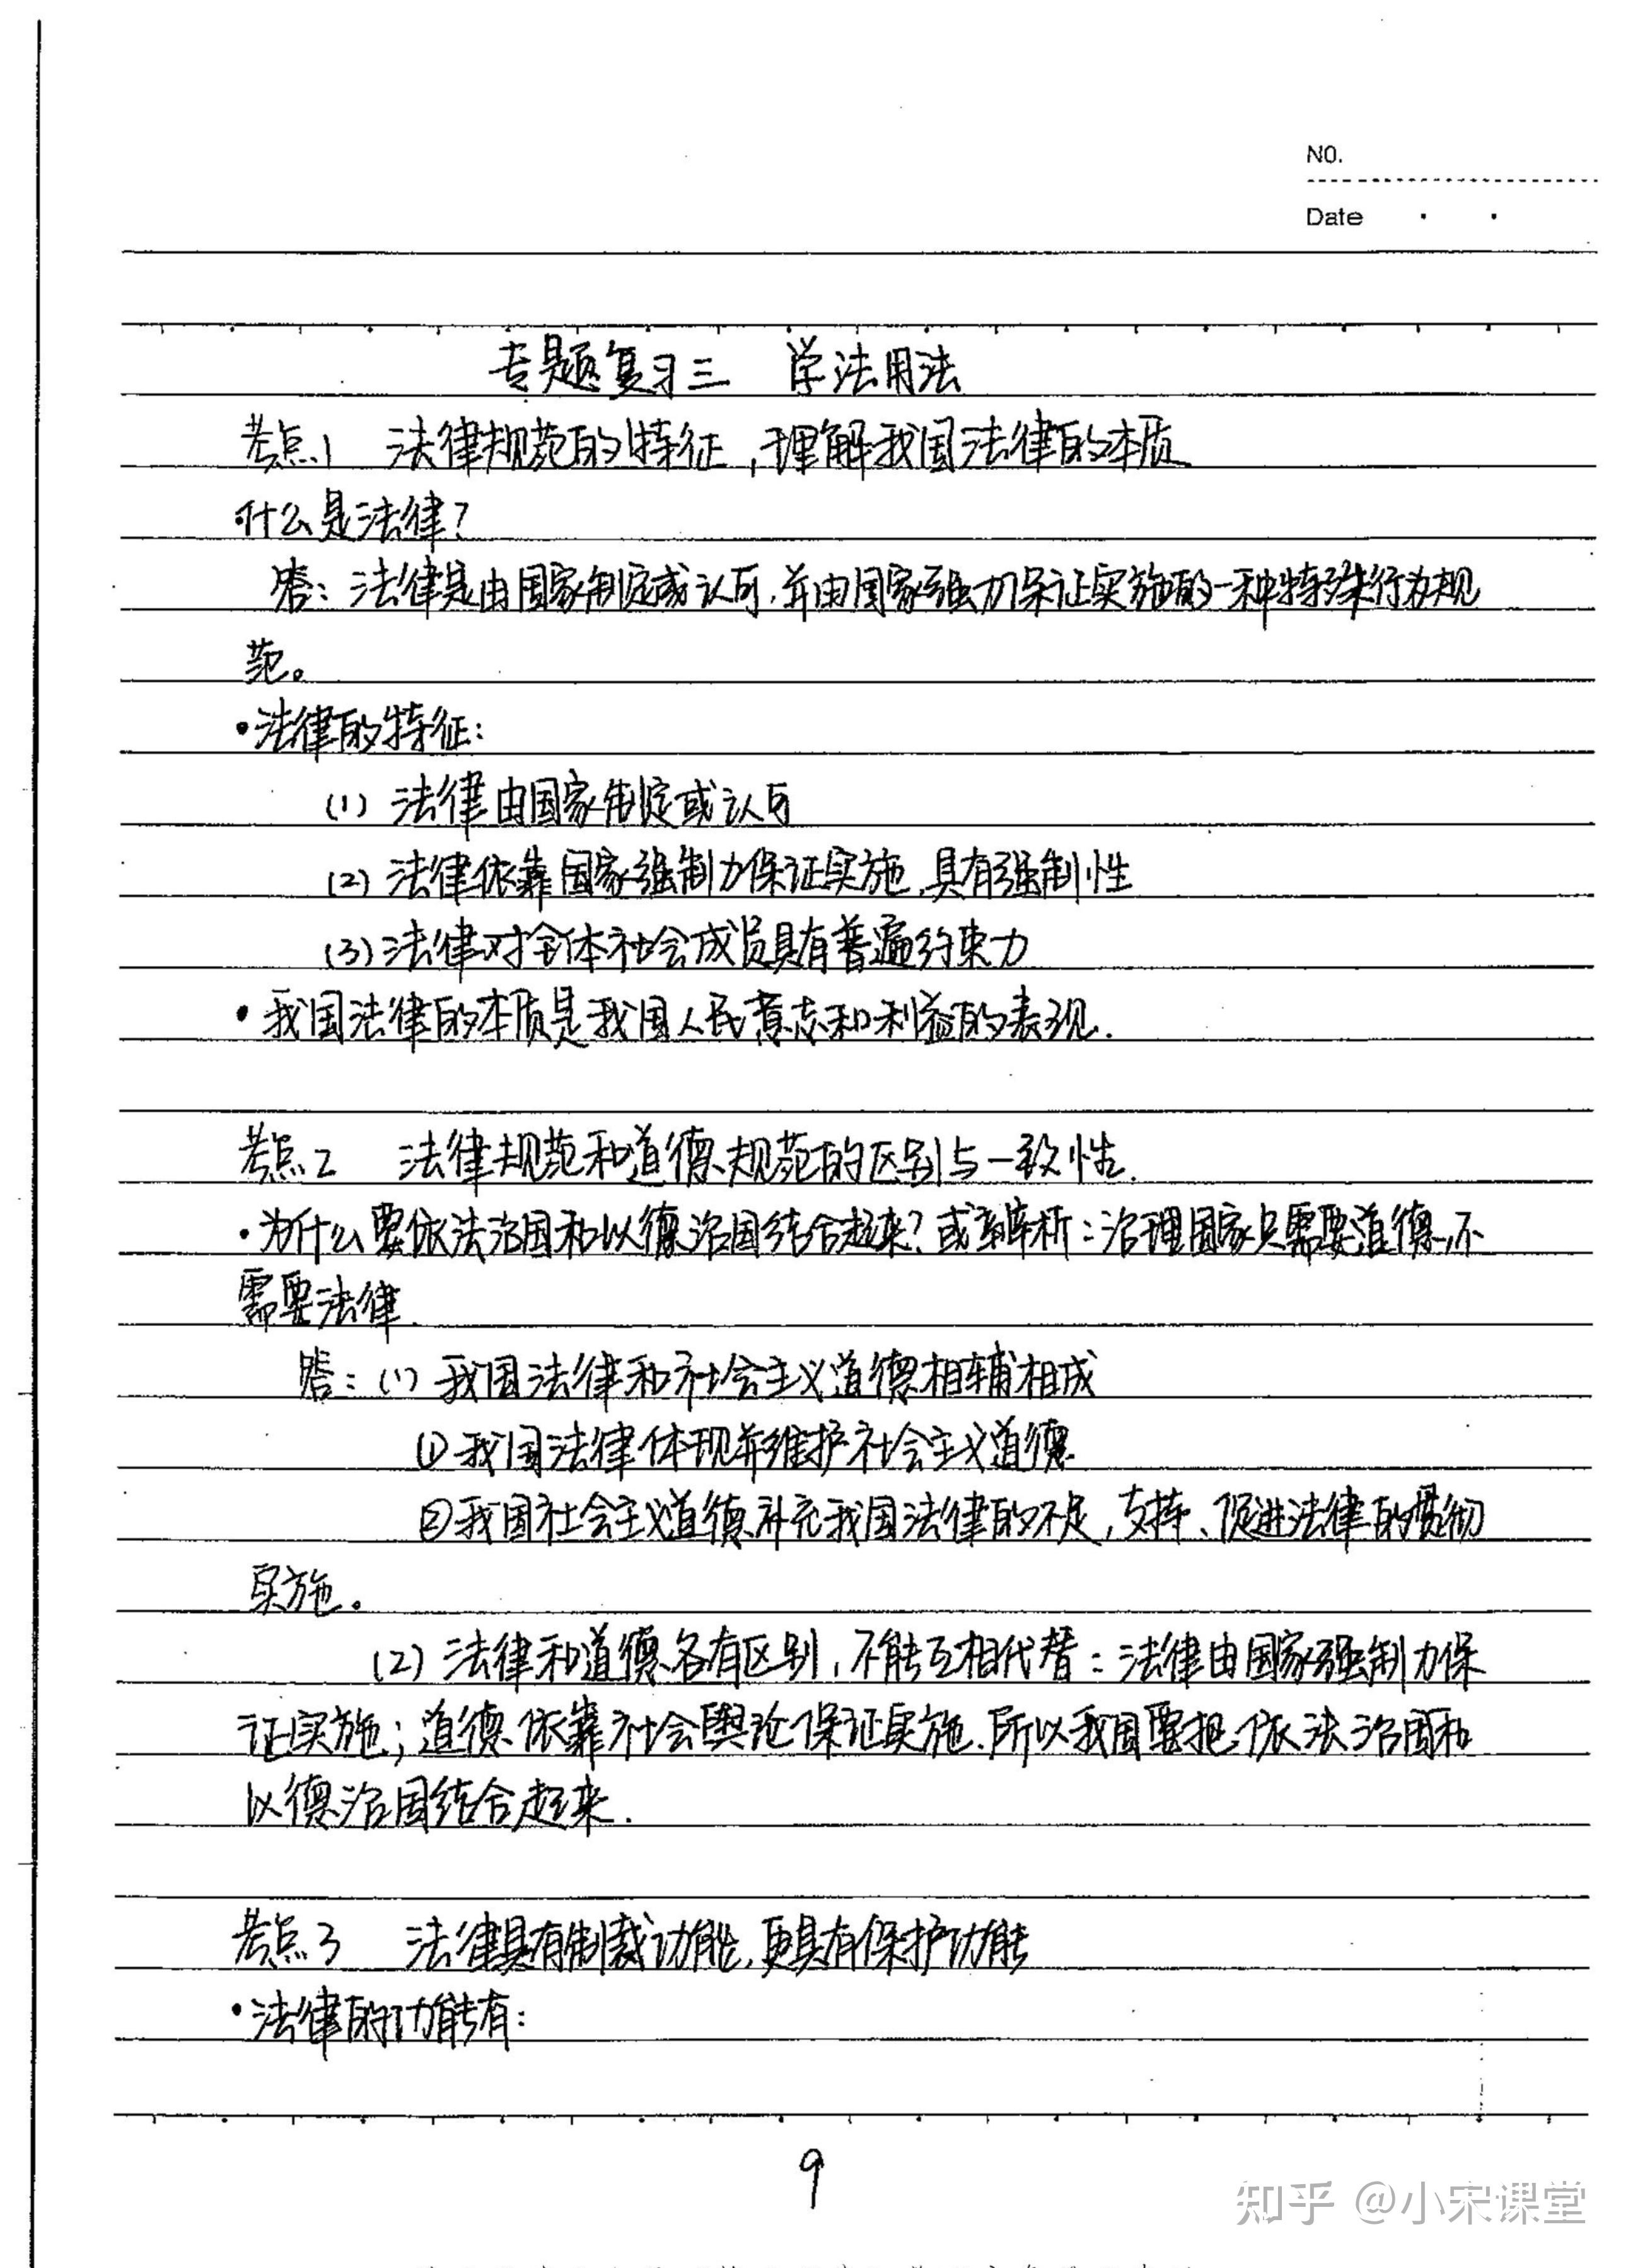 NO.
Date
专题复习三 学法用法
考点1 法律规范的特征，理解我国法律的本质
·什么是法律？
答：法律是由国家制定或认可，并由国家强力保证实施的一种特殊行为规
范。
·法律的特征：
(1) 法律由国家制定或认可
(2) 法律依靠国家强制力保证实施，具有强制性
(3) 法律对全体社会成员具有普遍约束力
·我国法律的本质是我国人民意志和利益的表现.
考点2 法律规范和道德规范的区别与一致性.
·为什么要依法治国和以德治国结合起来？或辨析：治理国家只需要道德，不
需要法律.
答：(1) 我国法律和社会主义道德相辅相成
①我国法律体现并维护社会主义道德
②我国社会主义道德补充我国法律的不足，支持、促进法律的贯彻
实施。
(2) 法律和道德各有区别，不能互相代替：法律由国家强制力保
证实施；道德依靠社会舆论保证实施.所以我国要把依法治国和
以德治国结合起来.
考点3 法律具有制裁功能，更具有保护功能
·法律的功能有：
9
知乎 @小宋课堂